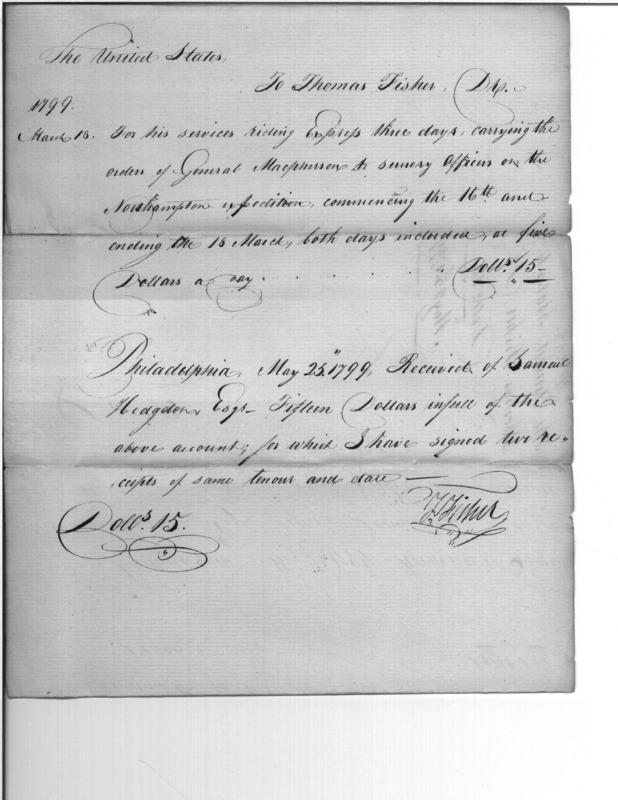 The United States,
To Thomas Fisher, Dr.
1799.
March 18. For his services riding Express three days, carrying the
orders of General Macpherson to sundry Officers on the
Northampton expedition, commencing the 16th and
ending the 18 March, both days included, at five
Dollars a day . . . . . Dolls. 15—
Philadelphia, May 25" 1799, Received of Samuel
Hodgdon, Esqr— Fifteen Dollars in full of the
above account; for which I have signed two re-
ceipts of same tenour and date —
Dolls. 15.
T Fisher